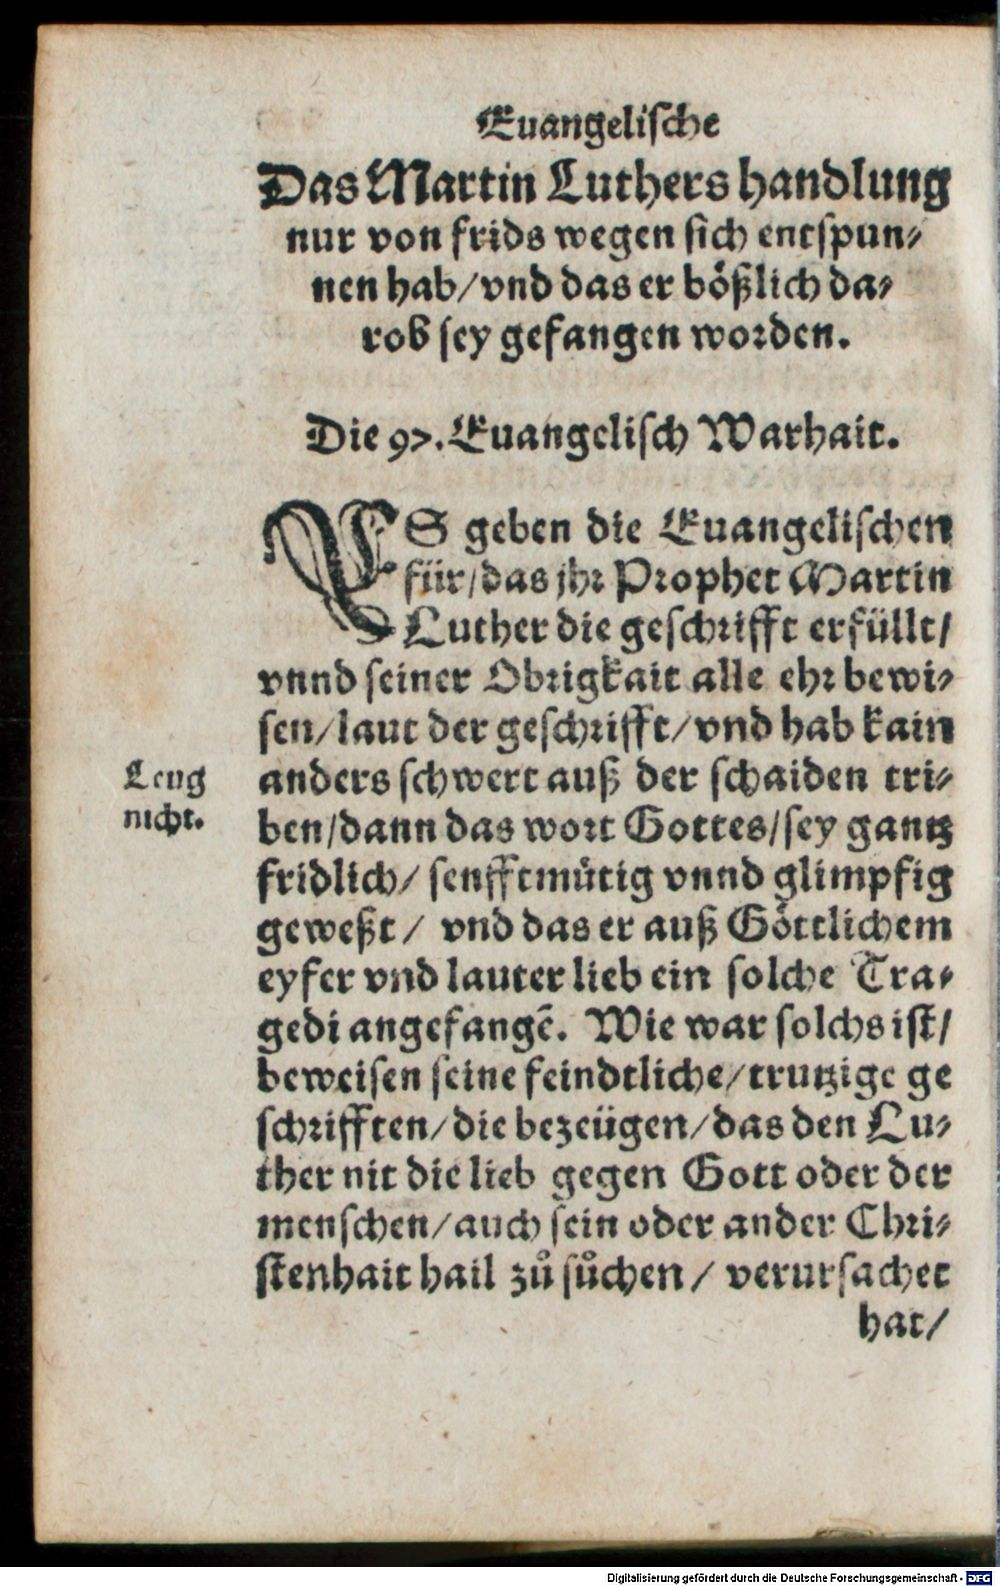 Euangelische
Das Martin Luthers handlung
nur von frids wegen sich entspun⸗
nen hab/vnd das er bößlich da⸗
rob sey gefangen worden.
Die 97. Euangelisch Warhait.
ES geben die Euangelischen
für/das jhr Prophet Martin
Luther die geschrifft erfüllt/
vnnd seiner Obrigkait alle ehr bewi⸗
sen/laut der geschrifft/vnd hab kain
anders schwert auß der schaiden tri⸗
ben/dann das wort Gottes/sey gantz
fridlich/ senfftmütig vnnd glimpfig
geweßt/ vnd das er auß Göttlichem
eyfer vnd lauter lieb ein solche Tra⸗
gedi angefangē. Wie war solchs ist/
beweisen seine feindtliche/trutzige ge
schrifften/die bezeügen/das den Lu⸗
ther nit die lieb gegen Gott oder der
menschen/auch sein oder ander Chri⸗
stenhait hail zů sůchen/ verursachet
hat/
Leug
nicht.
Digitalisierung gefördert durch die Deutsche Forschungsgemeinschaft - DFG